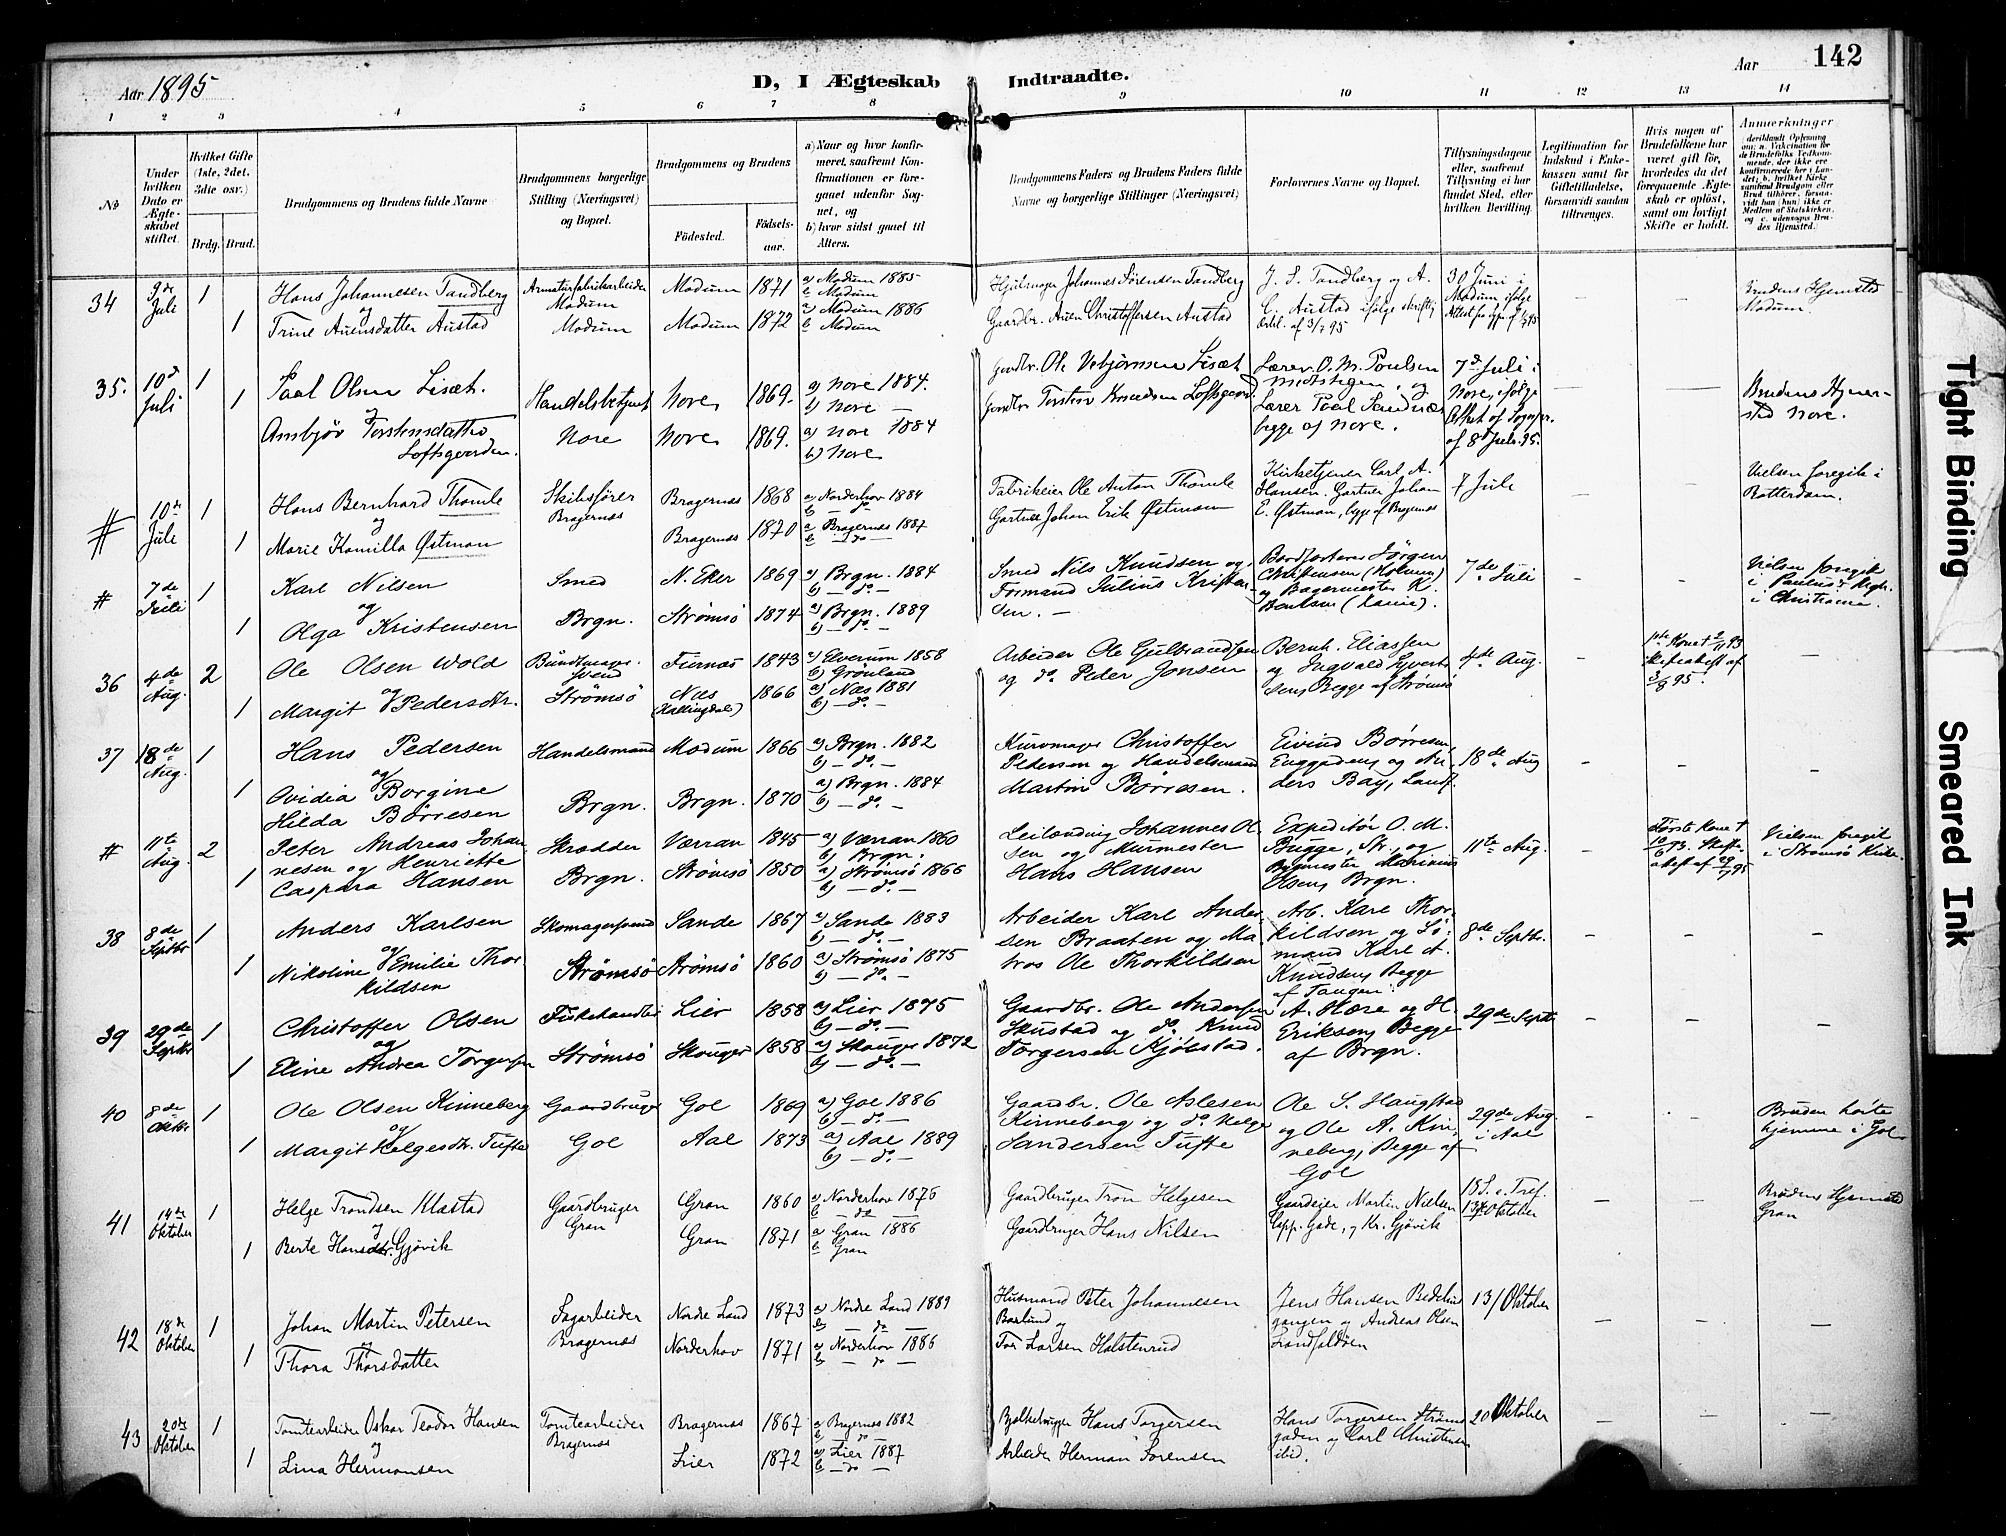 142
Aar 1895
D, I Ægteskab Indtraadte.
Aar
1 2 3 4 5 6 7 8 9 10 11 12 13 14
No
Under hvilken Dato er Ægteskabet stiftet.
Hvilket Gifte (1ste, 2det, 3die osv.)
Brdg. Brud.
Brudgommens og Brudens fulde Navne
Brudgommens borgerlige Stilling (Næringsvei) og Bopæl.
Brudgommens og Brudens
Fødested. Fødselsaar.
a) Naar og hvor konfirmeret, saafremt Konfirmationen er foregaaet udenfor Sognet, og
b) hvor sidst gaaet til Alters.
Brudgommens Faders og Brudens Faders fulde Navne og borgerlige Stillinger (Næringsvei)
Forlovernes Navne og Bopæl.
Tillysningsdagene eller, saafremt Tillysning ei har fundet Sted, efter hvilken Bevilling.
Legitimation for Indskud i Enkekassen samt for Giftetilladelse, forsaavidt saadan tiltrænges.
Hvis nogen af Brudefolkene har været gift før, hvorledes da det foregaaende Ægteskab er opløst, samt om lovligt Skifte er holdt.
Anmerkninger
34 9de Juli 1 Hans Johannesen Tandberg Armaturfabrikarbeider Modum Modum 1871 a) Modum 1885 b Modum Hjulmager Johannes Sørensen Tandberg J. S. Tandberg og A. 30 Juni i Brudens Hjemsted
og
1 Trine Auensdatter Austad Modum Modum 1872 a) Modum 1886 b Modum Gaardbr. Auen Christoffersen Austad C. Austad ifølge skriftlig Modum ifølge Modum.
35. 10de Juli 1 Paal Olsen Lisæt. Handelsbetjent Nore 1869. a) Nore 1884. b) Nore Gaardbr. Ole Lisæt Lærer O. M. Poulsen 7de Juli i Brudens Hjemsted Nore.
og
1 Ambjør Torstensdatter Loftsgaarden. Nore Nore 1869. a) Nore 1884 b) Nore Torsten Knudsen Loftsgaard Lærer Paal begge af Nore. Nore, ifølge Attest af Sognepr. af 8de Juli 95.
# 10de Juli 1 Hans Bernhard Thomle Bragernæs Bragernæs 1868 a) Norderhov 1884 b - do Fabrikeier Ole Anton Thomle Kirketjener Carl A. Hansen. Gartner Johan 7 Juli Vielsen foregik i Rotterdam.
og
1 Marie Kamilla Østman Bragernæs 1870 a Bragernæs 1887 b - do Gartner Johan Erik Østman E. Østman, begge af Bragernæs
# 7de Juli 1 Karl Nilsen Smed N. Eker 1869 a) Brgn. 1884 b) - do. - Smed Nils Knudsen og Jørgen Christensen (Holmen) 7de Juli Vielsen foregik i Paulus Kirke
og
1 Olga Kristensen Brgn. Strømsö 1874 a) Brgn. 1889 b) - do. - Formand Julius Kristensen. og Bagermester K. Bentsen i Christiania.
36 4de Aug. 2 Ole Olsen Wold Svend Furnæs 1843 a) Elverum 1858 b) Grønland Arbeider Ole Gulbrandsen Bernh. Eliassen 4de Aug. 1ste Kone †
og
1 Margit Pedersdtr. Strømsö Næs (Hallingdal) 1866 a) Næs 1881 b) - do. - og do. Peder Jonsen og Ingvald Syvertsen, Begge af Strømsö
37 18de Aug. 1 Hans Pedersen Handelsmand Modum 1866 a) Brgn. 1882 b) - do. - Kurvmager Christoffer Eivind Børresen, 18de Aug
og
1 Ovidia Borgine Hilda Børresen Brgn. Brgn. 1870 a) Brgn. 1884 b) - do. - Pedersen og Handelsmand Martin Børresen. Enggaden, og Anders Bay, Landf.
# 11te Aug. 2 Peter Andreas Johannesen og Henriette Skrædder Værran 1845 a) Værran 1860 b) Brgn. Leilænding Johannes Olsen og Murmester Expeditør O. M. Bugge, Str., og 11te Aug. Første Kone † Vielsen foregik i Strømsö Kirke.
1 Caspara Hansen Brgn. Strømsö 1850 a) Strømsö 1866 b) - do. - Hans Hansen Bygmester Marinius Olsen, Brgn.
38 8de Septbr 1 Anders Karlsen Skomagersvend Sande 1867 a) Sande 1883 b) - do. - Arbeider Karl Andersen Braaten og Ma- Arb. Karl Thorkildsen og Sö- 8de Septbr.
og
1 Nikoline Emilie Thorkildsen Strømsö Strømsö 1860 a) Strømsö 1875 b) - do. - tros Ole Thorkildsen mand Karl A. Knudsen, Begge af Tangen.
39 29de Septbr 1 Christoffer Olsen Fiskehandler Lier 1858 a) Lier 1875 b) - do. - Gaardbr. Ole Andersen A. Hære og H. 29de Septbr.
og
1 Eline Andrea Torgersen Strømsö Skouger 1858 a) Skouger 1872 b) - do. - Skustad og do. Knud Torgersen Kjølstad. Eriksen, Begge af Brgn.
40 8de Oktbr 1 Ole Olsen Kinneberg Gaardbruger Gol 1869 a) Gol 1886 b) - do. - Gaardbr. Ole Aslesen Ole S. Haugstad 29de Aug. Bruden hørte
og
1 Margit Helgesdtr. Tufte Gol Aal 1873 a) Aal 1889 b) - do. - Kinneberg og do. Helge Sandersen Tufte og Ole A. Kinneberg, Begge af Gol i Aal hjemme i Gol.
41 14de Oktober 1 Helge Trondsen Klastad Gaardbruger Gran Gran 1860 a) Norderhov 1876 b - do - Gaardbruger Tron Helgesen Gaardeier Martin Nielsen 18 S. e. Tref. Brudens Hjemsted
og
1 Berte Hansdtr. Gjøvik Gran 1871 a Gran 1886 b Gran Gaardbruger Hans Nilsen Capp. Gade, og Kr. Gjøvik 13/ Oktober Gran
42 18de Oktober 1 Johan Martin Petersen Sagarbeider Bragernæs Nordre Land 1873 a) Nordre Land 1889 b - do - Husmand Peter Johannesen Jens Hansen 13/ Oktober
og
1 Thora Thorsdatter Norderhov 1871 a) Norderhov 1886 b - do - Tor Larsen Holstenrud gangen og Andreas Olsen Landfaldøen
43 20de Oktober 1 Tomtearbeider Oskar Teodor Hansen Tomtearbeider Bragernæs Bragernæs 1867 a Bragernæs 1882 b do Hans Torgersen Hans Torgersen Strøms 20 Oktober
og
1 Lina Hermansen Lier 1872 a) Lier 1887 b - do - Arbeider Herman Sørensen gaden og Carl Christensen ibid.
Tight Binding
Smeared Ink